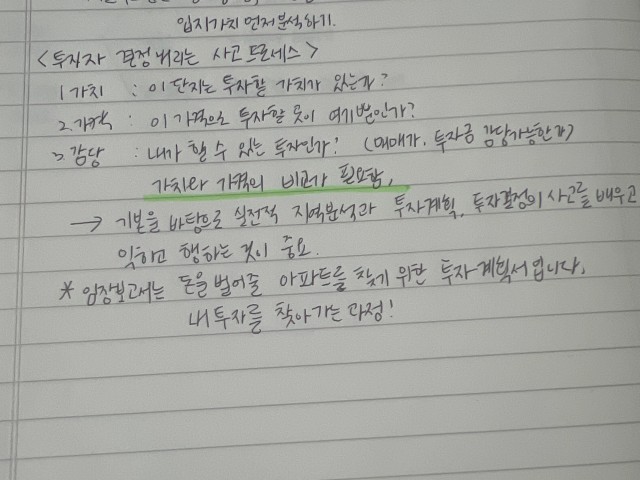 입지가치 먼저 분석하기.
<투자자 결정 내리는 사고 프로세스>
1 가치 : 이 단지는 투자할 가치가 있는가?
2. 가격 : 이 가격으로 투자할 곳이 여기뿐인가?
3 감당 : 내가 할 수 있는 투자인가? (매매가. 투자금 감당가능한가)
가치와 가격의 비교가 필요함.
→ 기본을 바탕으로 실전적 지역분석과 투자계획, 투자결정의 사고를 배우고
익히고 행하는 것이 중요.
* 임장보고서는 돈을 벌어줄 아파트를 찾기 위한 투자계획서입니다.
내 투자를 찾아가는 과정!